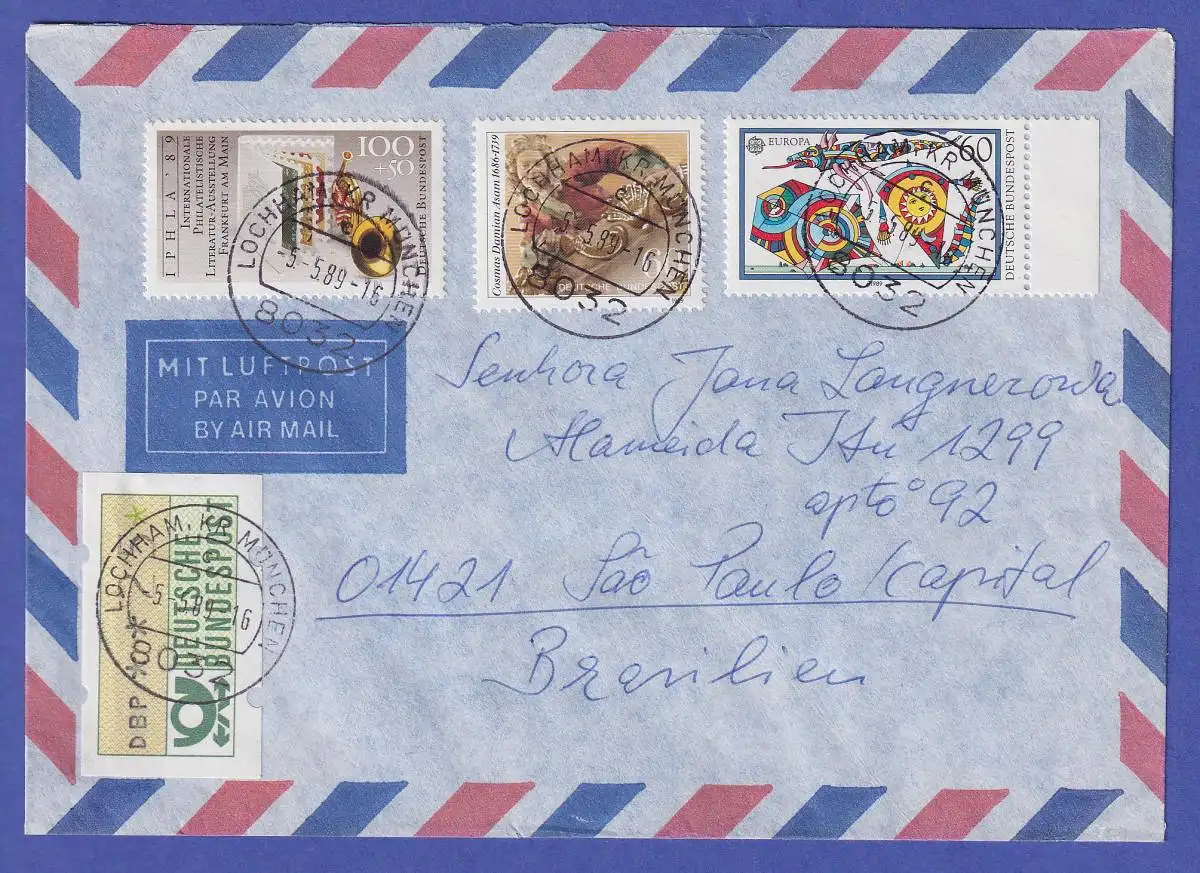 IPHLA '89
INTERNATIONALE
PHILATELISTISCHE
LITERATUR-AUSSTELLUNG
FRANKFURT AM MAIN
100
+50
DEUTSCHE BUNDESPOST
LOCHHAM, KR. MÜNCHEN
-5.-5.89-16
8032
Cosmas Damian Asam 1686-1739
DEUTSCHE BUNDESPOST
LOCHHAM, KR. MÜNCHEN
-5.-5.89-16
8032
EUROPA
60
DEUTSCHE BUNDESPOST
1989
LOCHHAM, KR. MÜNCHEN
8032
MIT LUFTPOST
PAR AVION
BY AIR MAIL
Senhora Jana Langnerowa
Alameida Itu 1299
apto 92
01421 São Paulo/Kapital
Brasilien
DEUTSCHE
BUNDESPOST
DBP
LOCHHAM, KR. MÜNCHEN
5.-5.89-16